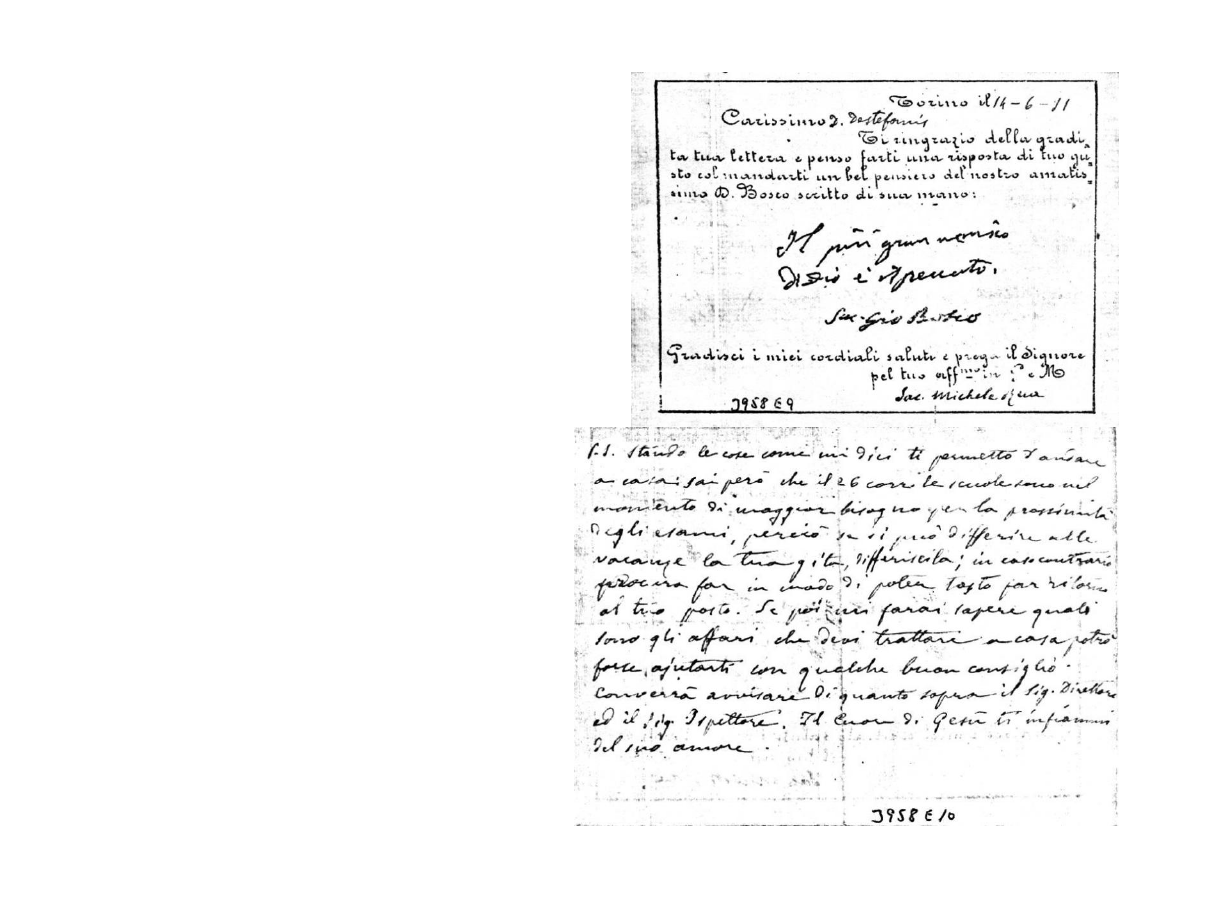 Torino il 14-6-11
Carissimo D. Destefanis
Ti ringrazio della gradi-
ta tua lettera e penso farti una risposta di tuo gu-
sto col mandarti un bel pensiero del nostro amatis-
simo D. Bosco scritto di sua mano:
Il più gran nemico
di Dio è il peccato.
Sac. Gio Bosco
Gradisci i miei cordiali saluti e prega il Signore
pel tuo aff.mo in e M
Sac. Michele Rua
3958 E 9
P.S. Stando le cose come mi dici ti permetto d'andare
a casa: sai però che il 26 corr. le scuole sono nel
momento di maggior bisogno per la prossimità
degli esami, perciò se si può differire alle
vacanze la tua gita, differiscila; in caso contrario
procura far in modo di poter tosto far ritorno
al tuo posto. Se poi mi farai sapere quali
sono gli affari che devi trattare a casa potrò
forse ajutarti con qualche buon consiglio.
Converrà avvisare di quanto sopra il Sig. Direttore
ed il Sig. Ispettore. Il Cuore di Gesù ti infiammi
del suo amore.
3958 E 10